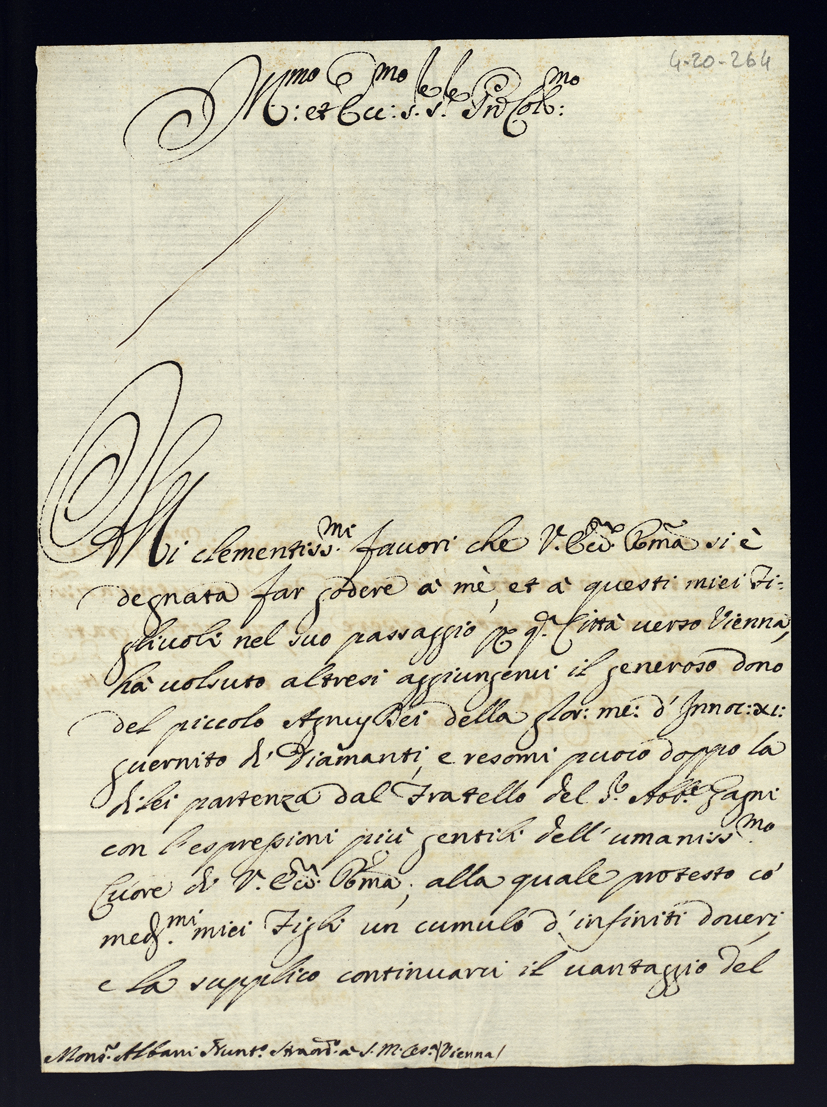 4-20-264
Ill:mo et Ecc:mo S.re S.re Pnd Col:mo
Ai clementiss:mi favori che V.ra Ecc.za R͠ma si è
degnata far godere à mè, et à questi miei Fi=
glivoli nel suo passaggio p q.a Città verso Vienna,
hà volsuto altresi aggiungervi il generoso dono
del piccolo Agnus Dei della glor: me: d'Innoc: XI:
guernito di Diamanti, e resomi puoco doppo la
di lei partenza dal Fratello del S.r Abb.e Gagni
con l'espressioni più gentili dell'umaniss.mo
Cuore di V.ra Ecc.za R͠ma; alla quale protesto co'
med.mi miei Figli un cumulo d'infiniti doveri
e la supplico continuarci il vantaggio del
Mons.r Albani Nunt.o Straord.o à S. M. Ces.a /Vienna/